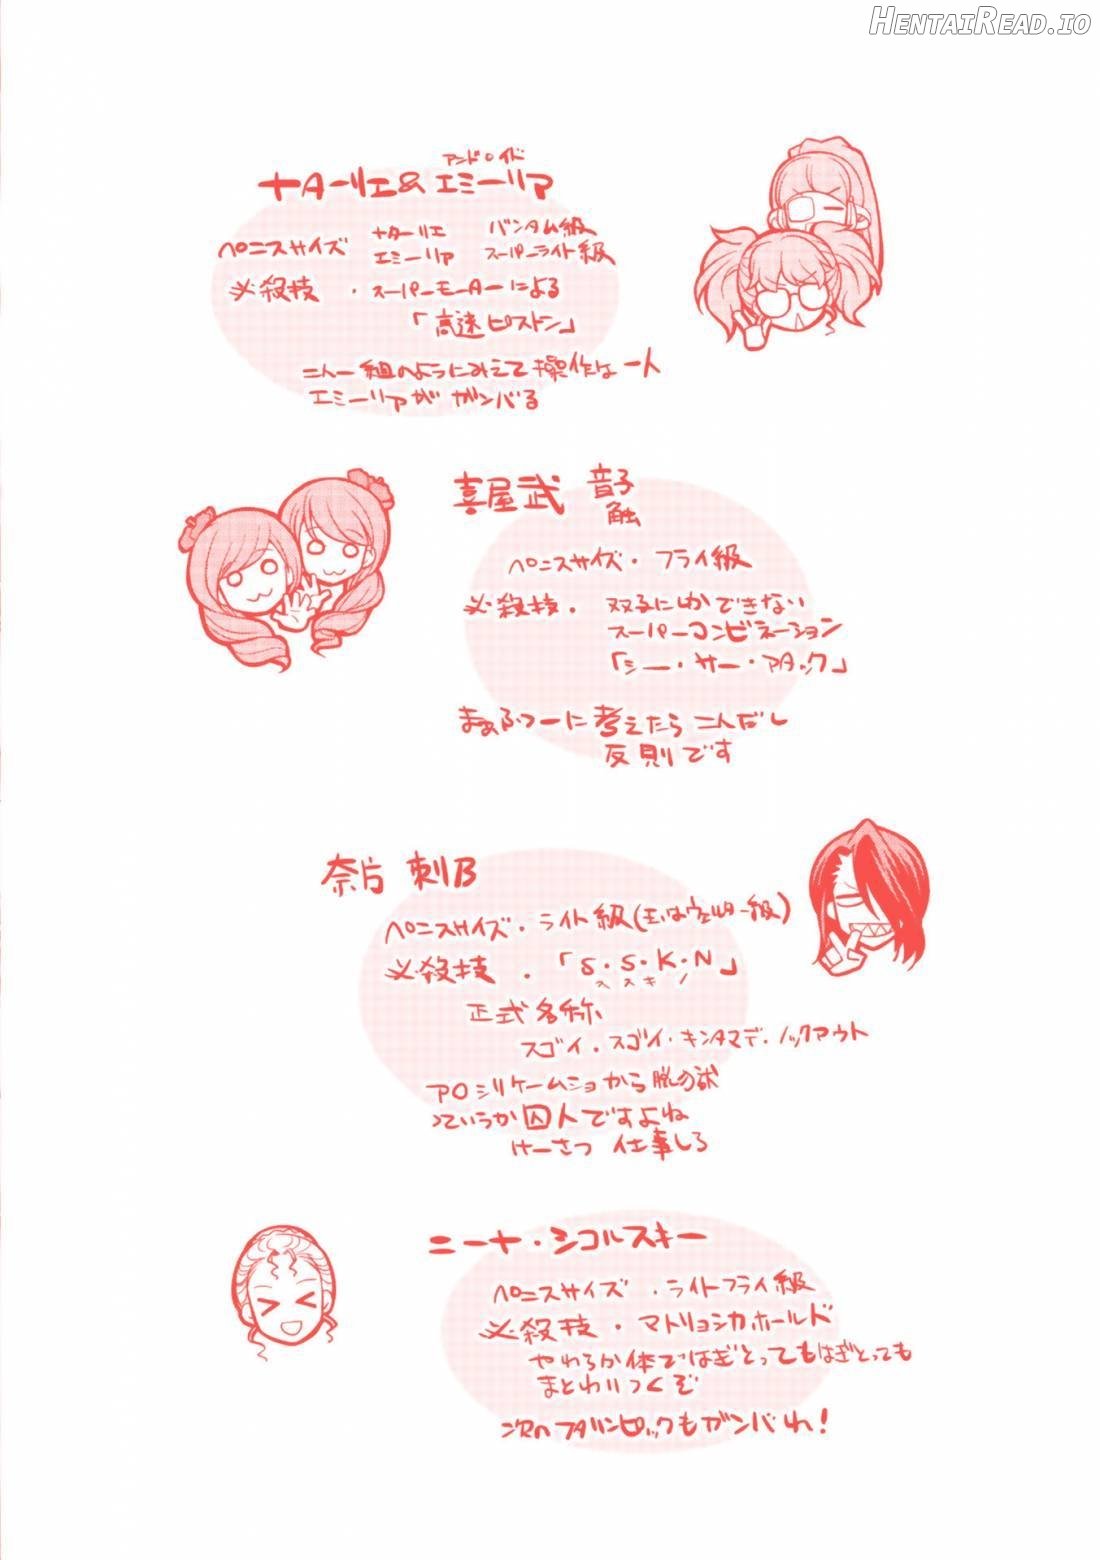 HENTAIREAD.IO
アンドロイド
ナターリエ&エミーリア
ペニスサイズ ナターリエ バンタム級
エミーリア スーパーライト級
必殺技 ・スーパーモーターによる
「高速ピストン」
二人一組のようにみえて操作は一人
エミーリアがガンバる
喜屋武 音子
触
ペニスサイズ・フライ級
必殺技・双子にしかできない
スーパーコンビネーション
「シー・サー・アタック」
まぁふつーに考えたら二人だし
反則です
奈片 刺B
ペニスサイズ・ライト級(玉はウェルター級)
必殺技・「S・S・K・N」
ススキノ
正式名称
スゴイ・スゴイ・キンタマデ・ノックアウト
アロシリケームショから脱の獄
っていうか囚人ですよね
けーさつ 仕事しろ
ニーナ・シコルスキー
ペニスサイズ・ライトフライ級
必殺技・マトリョシカホールド
やわらか体ではぎとってもはぎとっても
まとわりつくぞ
次のフタリンピックもガンバれ!